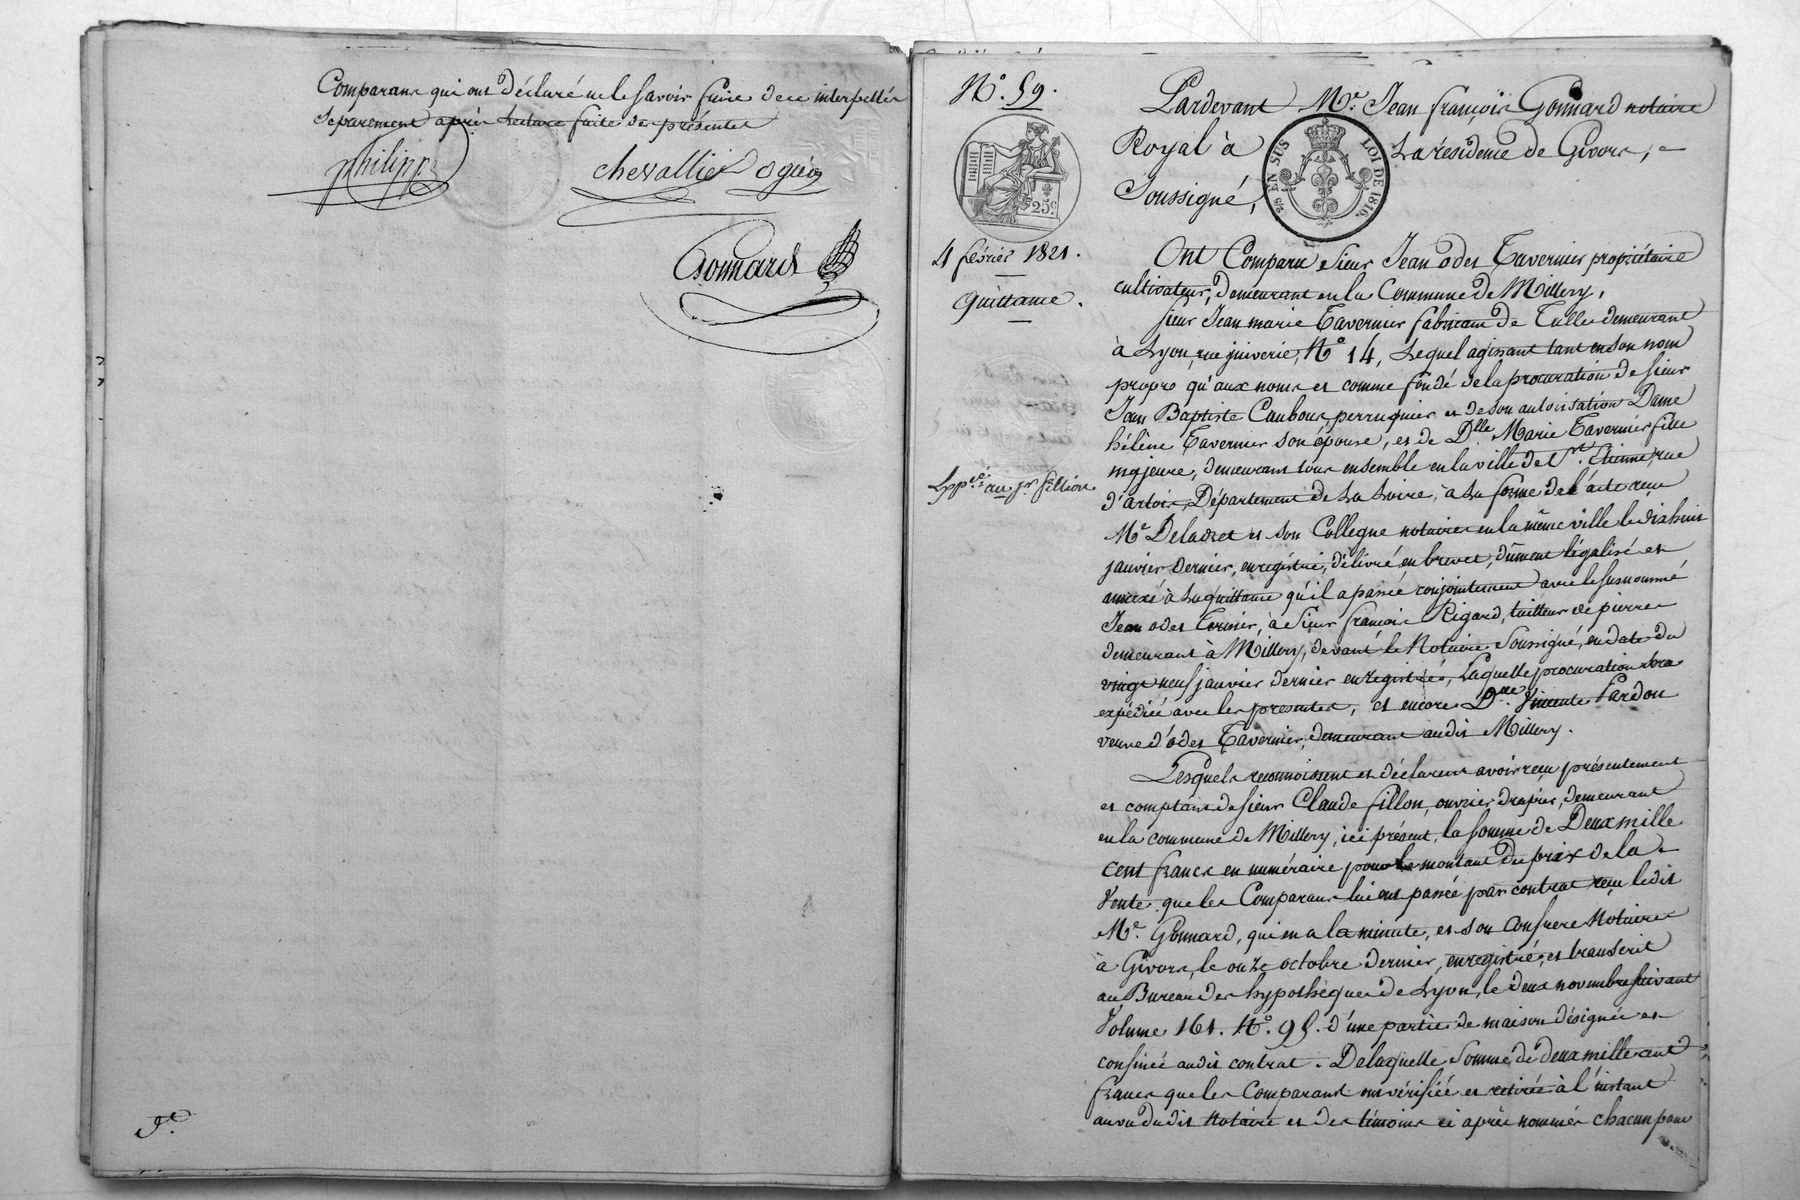 Comparans qui ont déclaré ne le savoir faire de ce interpellés
séparement après lecture faite des présentes
philippe
chevallier
ogier
Gonnard
N.° 59.
25.c
4 février 1821.
Quittance.
expé.ée au s.r fillion
Pardevant M.e Jean françois Gonnard notaire
Royal à la résidence de Givors,
Soussigné,
25 EN SUS LOI DE 1816.
Ont Comparu sieur Jean odes Tavernier propriétaire
cultivateur, demeurant en la Commune de Millery,
sieur Jean marie Tavernier fabricant de Tulles demeurant
à Lyon, rue juiverie, N.° 14, Lequel agissant tant en son nom
propre qu'aux noms et comme fondé de la procuration de sieur
Jean Baptiste Caubour, perruquier et de son autorisation Dame
hélène Tavernier son épouse, et de D.lle Marie Tavernier fille
majeure, demeurant tous ensemble en la ville de S.t Etienne, rue
d'artois, Département de La Loire, à La forme de l'acte reçu
M.e Deladret et son Collegue notaires en la même ville le dixhuit
janvier dernier, enregistré, délivré en brevet, dûment légalisé et
annexé à La quittance qu'il a passée conjointement avec le susnommé
Jean odes Tavernier, à sieur françois Rigard, tailleur de pierre
demeurant à Millery, devant le Notaire Soussigné, en date du
vingt neuf janvier dernier enregistrée, Laquelle procuration sera
expédiée avec les presentes, et encore D.me Vincente Pardon
veuve d'odes Tavernier, demeurant audit Millery.
Lesquels reconnoissent et déclarent avoir reçu présentement
et comptant de sieur Claude fillon, ouvrier drapier, demeurant
en la commune de Millery, ici présent, la somme de Deux mille
cent francs en numéraire pour le montant du prix de la
Vente que les Comparans lui ont passée par contrat reçu ledit
M.e Gonnard, qui en a la minute, et son Confrere Notaires
à Givors, le onze octobre dernier, enregistré, et transcrit
au Bureau des hypothèques de Lyon, le deux novembre suivant
Volume 161. N.° 95. d'une partie de maison désignée et
confinée audit contrat. De laquelle Somme de deux mille cent
francs que les Comparans ont vérifiée et retirée à l'instant
au vu dudit Notaire et des témoins ci après nommés chacun pour